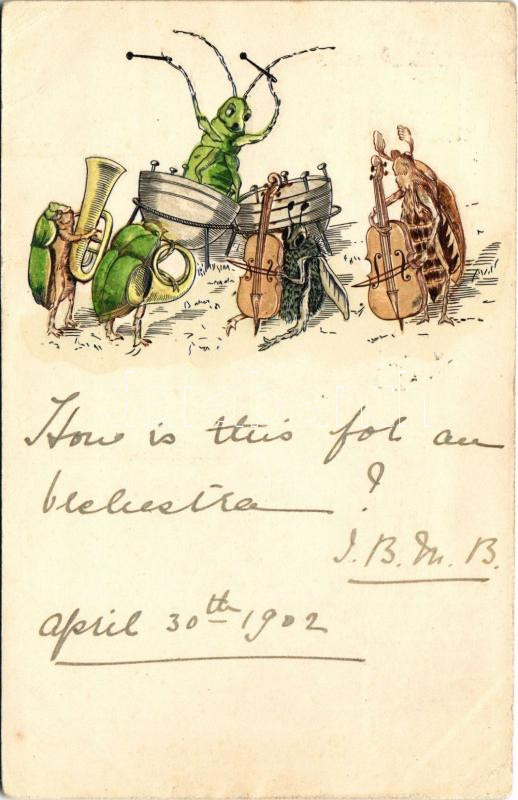 How is this for an
Orchestra ?
I. B. M. B.
April 30th 1902